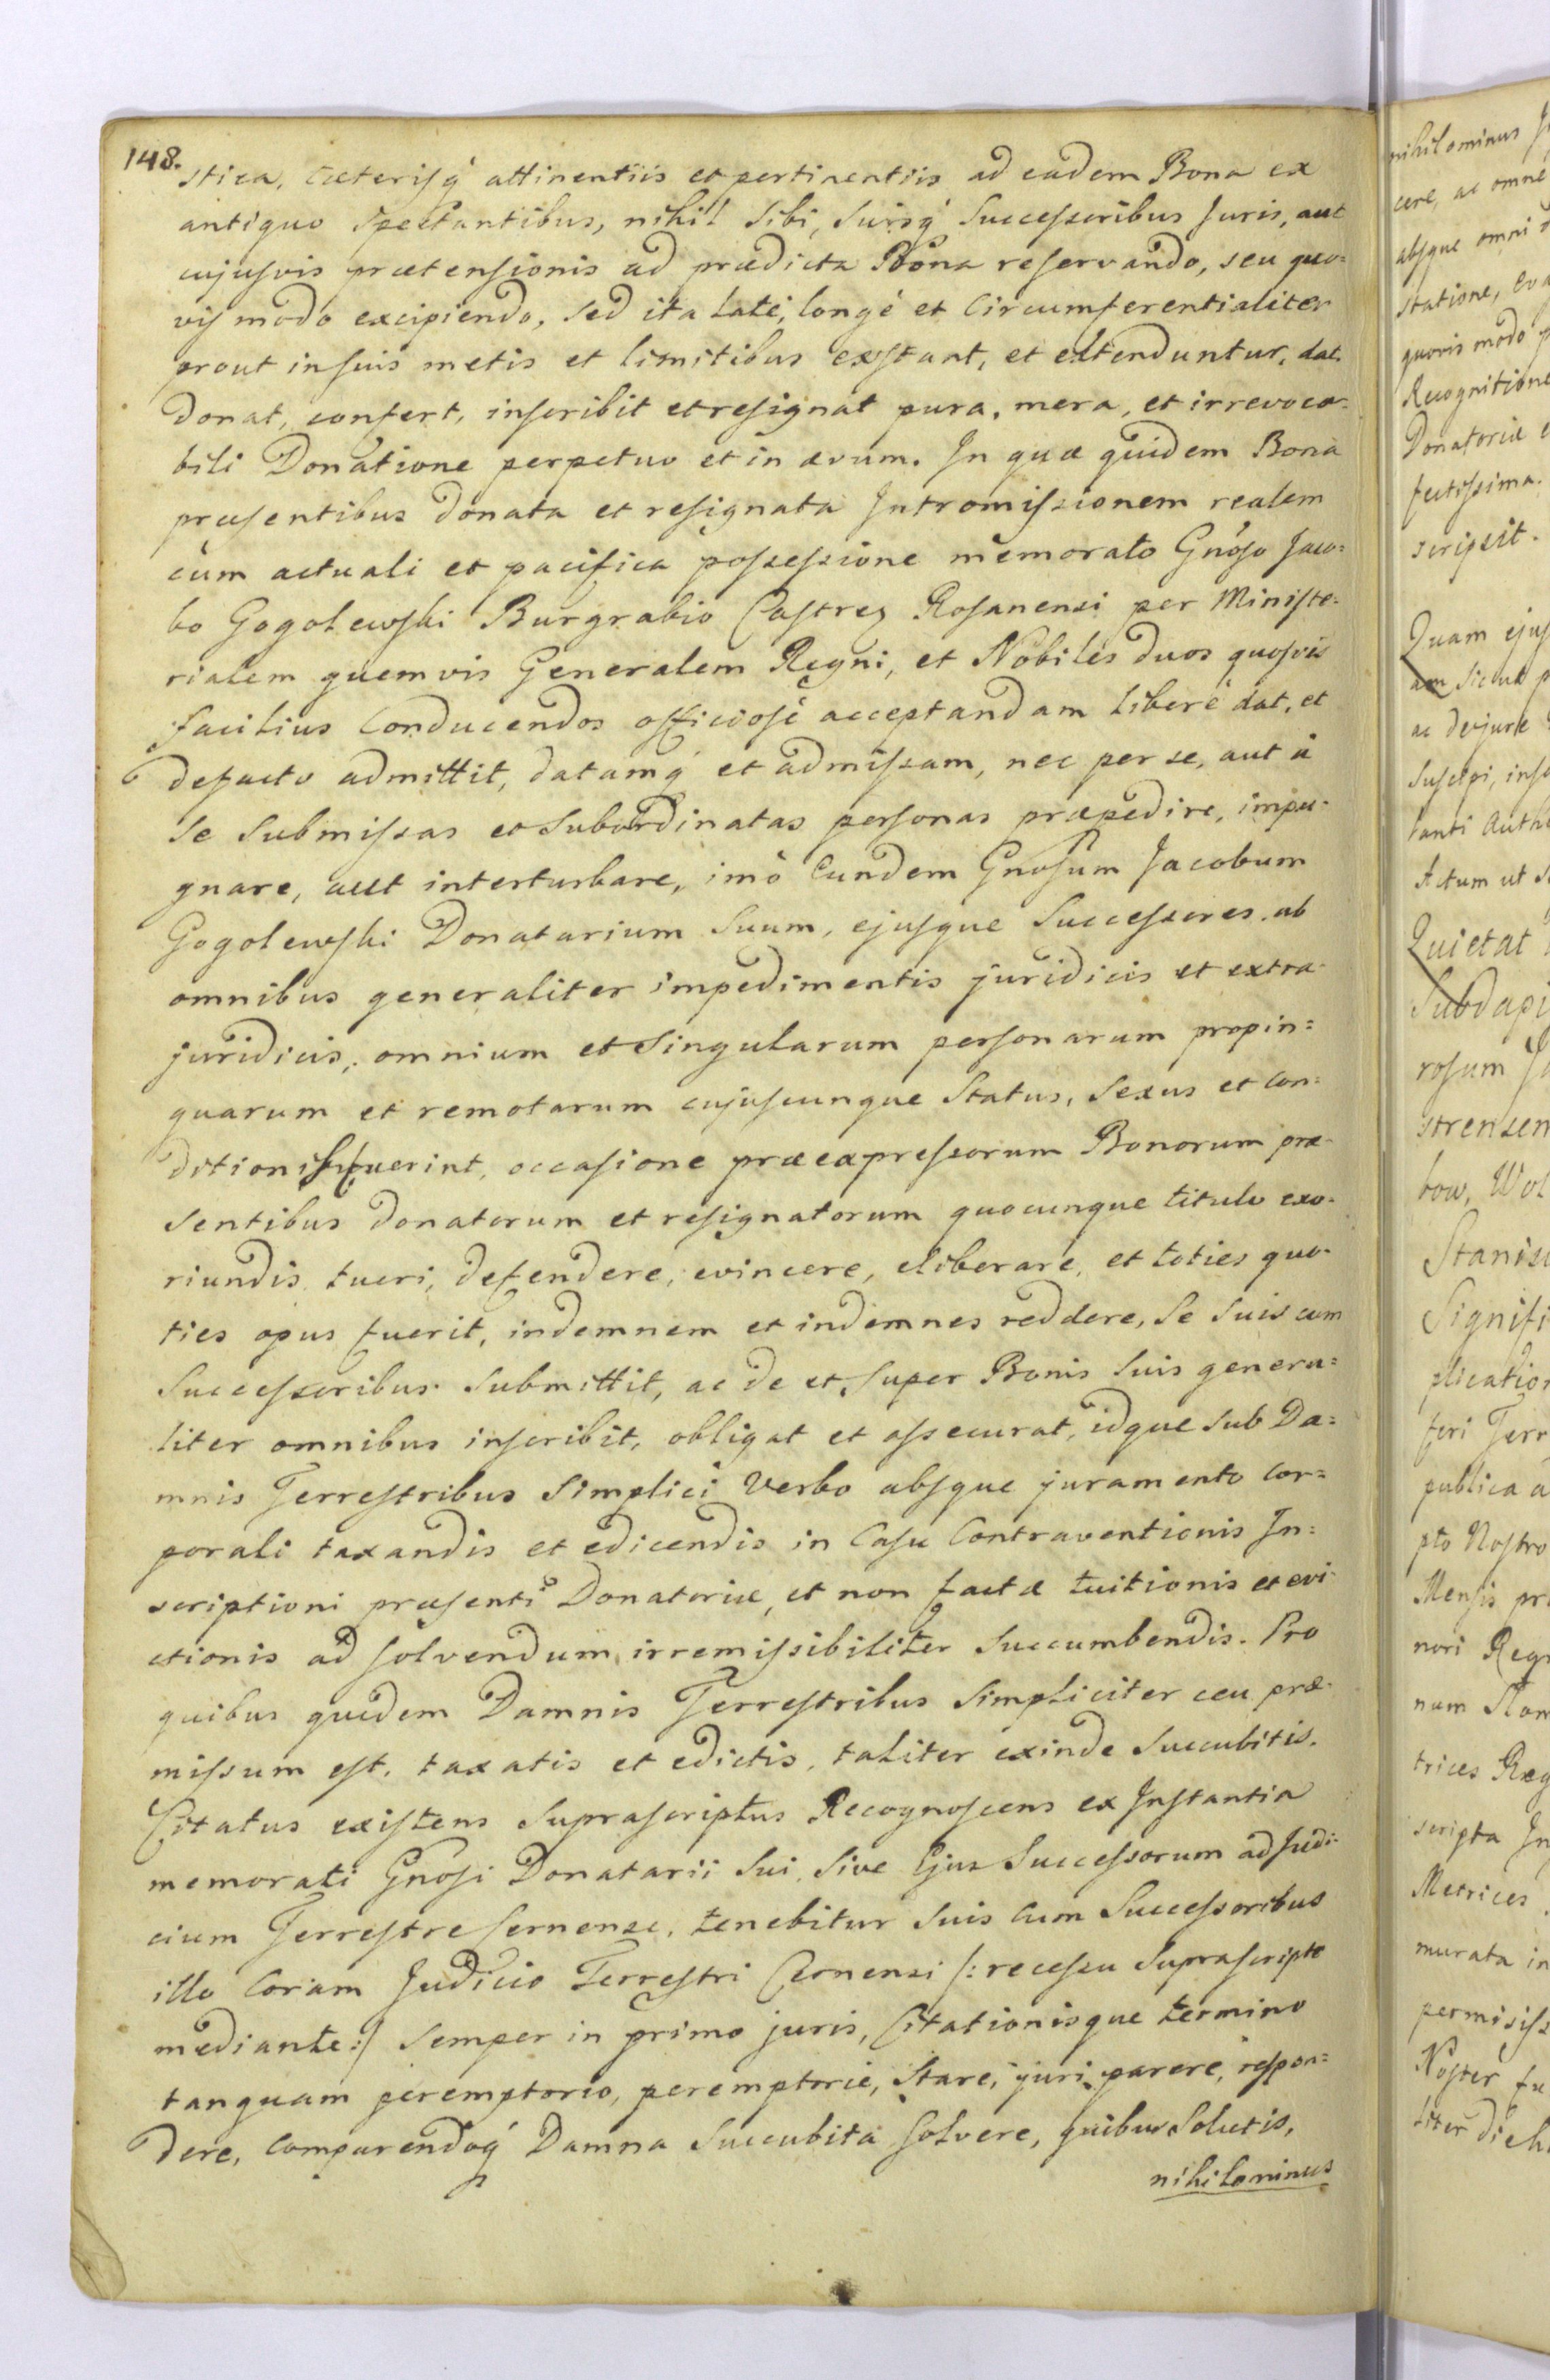 148.
stica, cæterisq́ attinentiis et pertinentiis ad eadem Bona ex
antiquo Spectantibus, nihil Sibi, Suisq́ Successoribus Juris, aut
cujusvis prætensionis ad prædicta Bona reservando, seu quo=
vis modo excipiendo, Sed ita latè, longè et Circumferentialiter
prout in suis metis et limitibus exstant, et extenduntur, dat.
Donat, confert, inscribit et resignat pura, mera, et irrevoca=
bili Donatione perpetuo et in ævum. In quæ quidem Bona
præsentibus Donata et resignata Intromissionem realem
cum actuali et pacifica possessione memorato Gnoso Jaco=
bo Gogolewski Burgrabio Castren Rosanensi per Ministe=
rialem quemvis Generalem Regni, et Nobiles duos quosvis
facilius Conducendos officiosè acceptandam liberè dat, et
defacto admittit, datamq́ et admissam, nec per se, aut à
Se Submissas et Subordinatas personas præpedire, impu=
gnare, aut interturbare, imò Eundem Gnosum Jacobum
Gogolewski Donatarium Suum, ejusque Successores ab
omnibus generaliter impedimentis juridicis et extra=
juridicis, omnium et Singularum personarum propin=
quarum et remotarum cujuscunque Status, Sexus et Con=
ditionis fuerint, occasione præexpressorum Bonorum præ=
sentibus Donatorum et resignatorum quocunque titulo exo=
riundis tueri, defendere, evincere, eliberare, et toties quo=
ties opus fuerit, indemnem et indemnes reddere, Se Suis cum
Successoribus Submittit, ac de et Super Bonis Suis genera=
liter omnibus inscribit, obligat et assecurat, idque Sub Da=
mnis Terrestribus Simplici Verbo absque juramento Cor=
porali taxandis et edicendis in Casu Contraventionis In=
scriptioni præsenti Donatoriæ, et non factæ tuitionis et evi=
ctionis ad solvendum irremissibiliter Succumbendis. Pro
quibus quidem Damnis Terrestribus Simpliciter ceu præ=
missum est, taxatis et edictis, taliter exinde Succubitis.
Citatus existens Suprascriptus Recognoscens ex Instantia
memorati Gnosi Donatarii Sui, Sive Ejus Successorum ad Judi=
cium Terrestre Cernense, tenebitur Suis Cum Successoribus
illo Coram Judicio Terrestri Cernensi /: recessu Suprascripto
mediante :/ Semper in primo juris, Citationisque termino
tanquam peremptorio, peremptoriè, Stare, juri parere, respon=
dere, Comparendoq́ Damna Succubita Solvere, quibus Solutis,
nihilominus
nihilominus
cere, ac omne
absque omni
statione, eva
quovis modo p
Recognitione
Donatoriæ e
fectissima.
scripsit.
Quam ejus
am Sicut p
ac de jure
Suscepi, insc
tanti Autho
Actum ut S
Quietat
Subdapi
rosum Ja
strensem
bow, Wol
Stanisl
Signifi
plicatio
feri Terr
publica a
pto Nostro
Mensis pr
nori Regn
num Rom
trices Reg
scripta In
Metrices
murata in
permisiss
Noster fu
liter dich